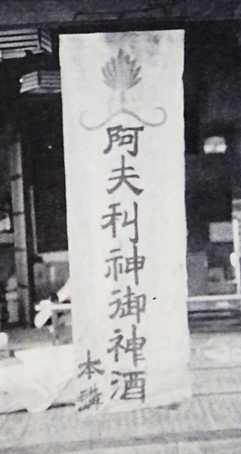 阿夫利神御神酒
本講